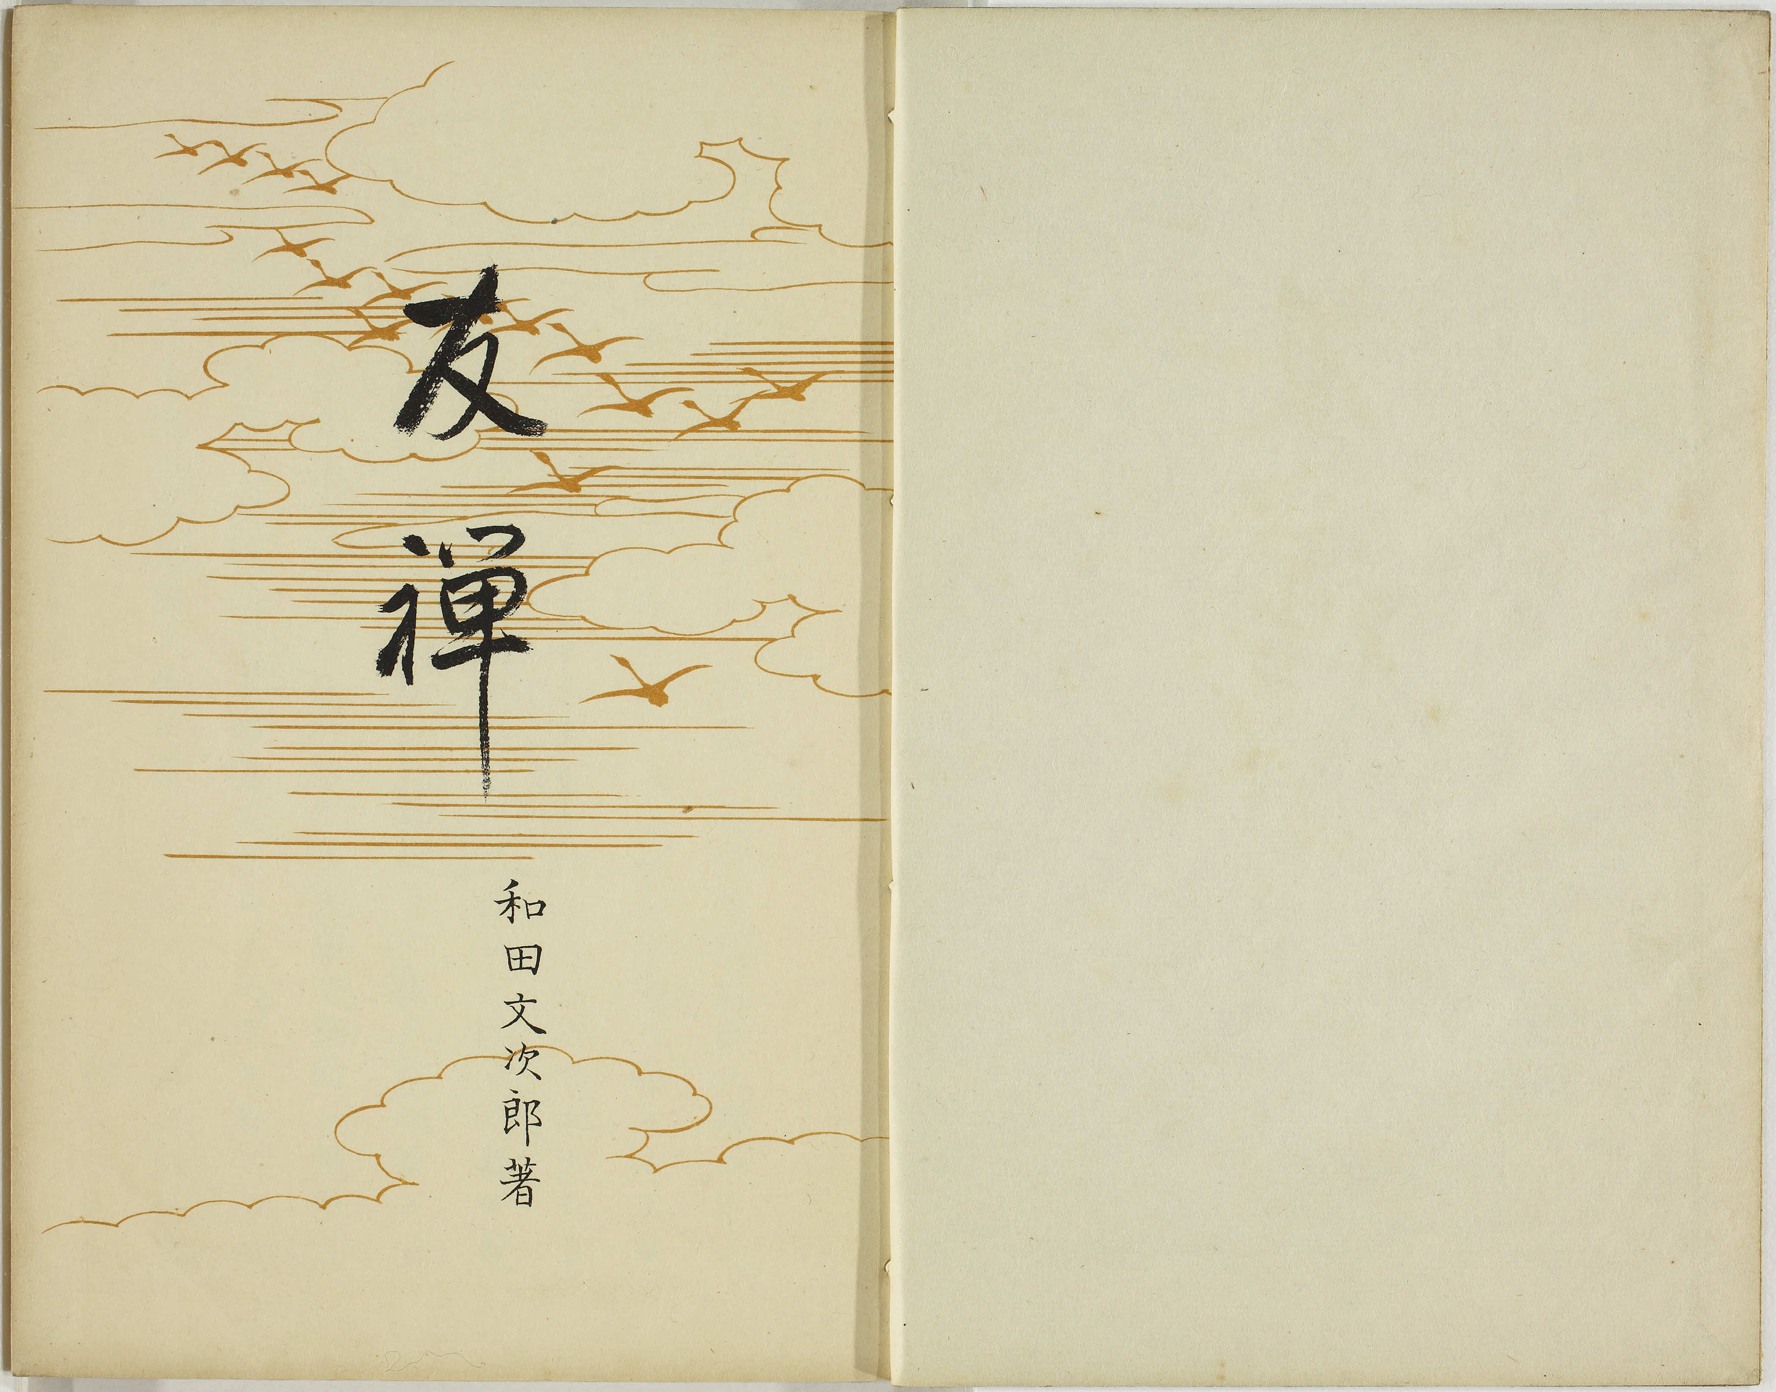 友禅
和田文次郎著